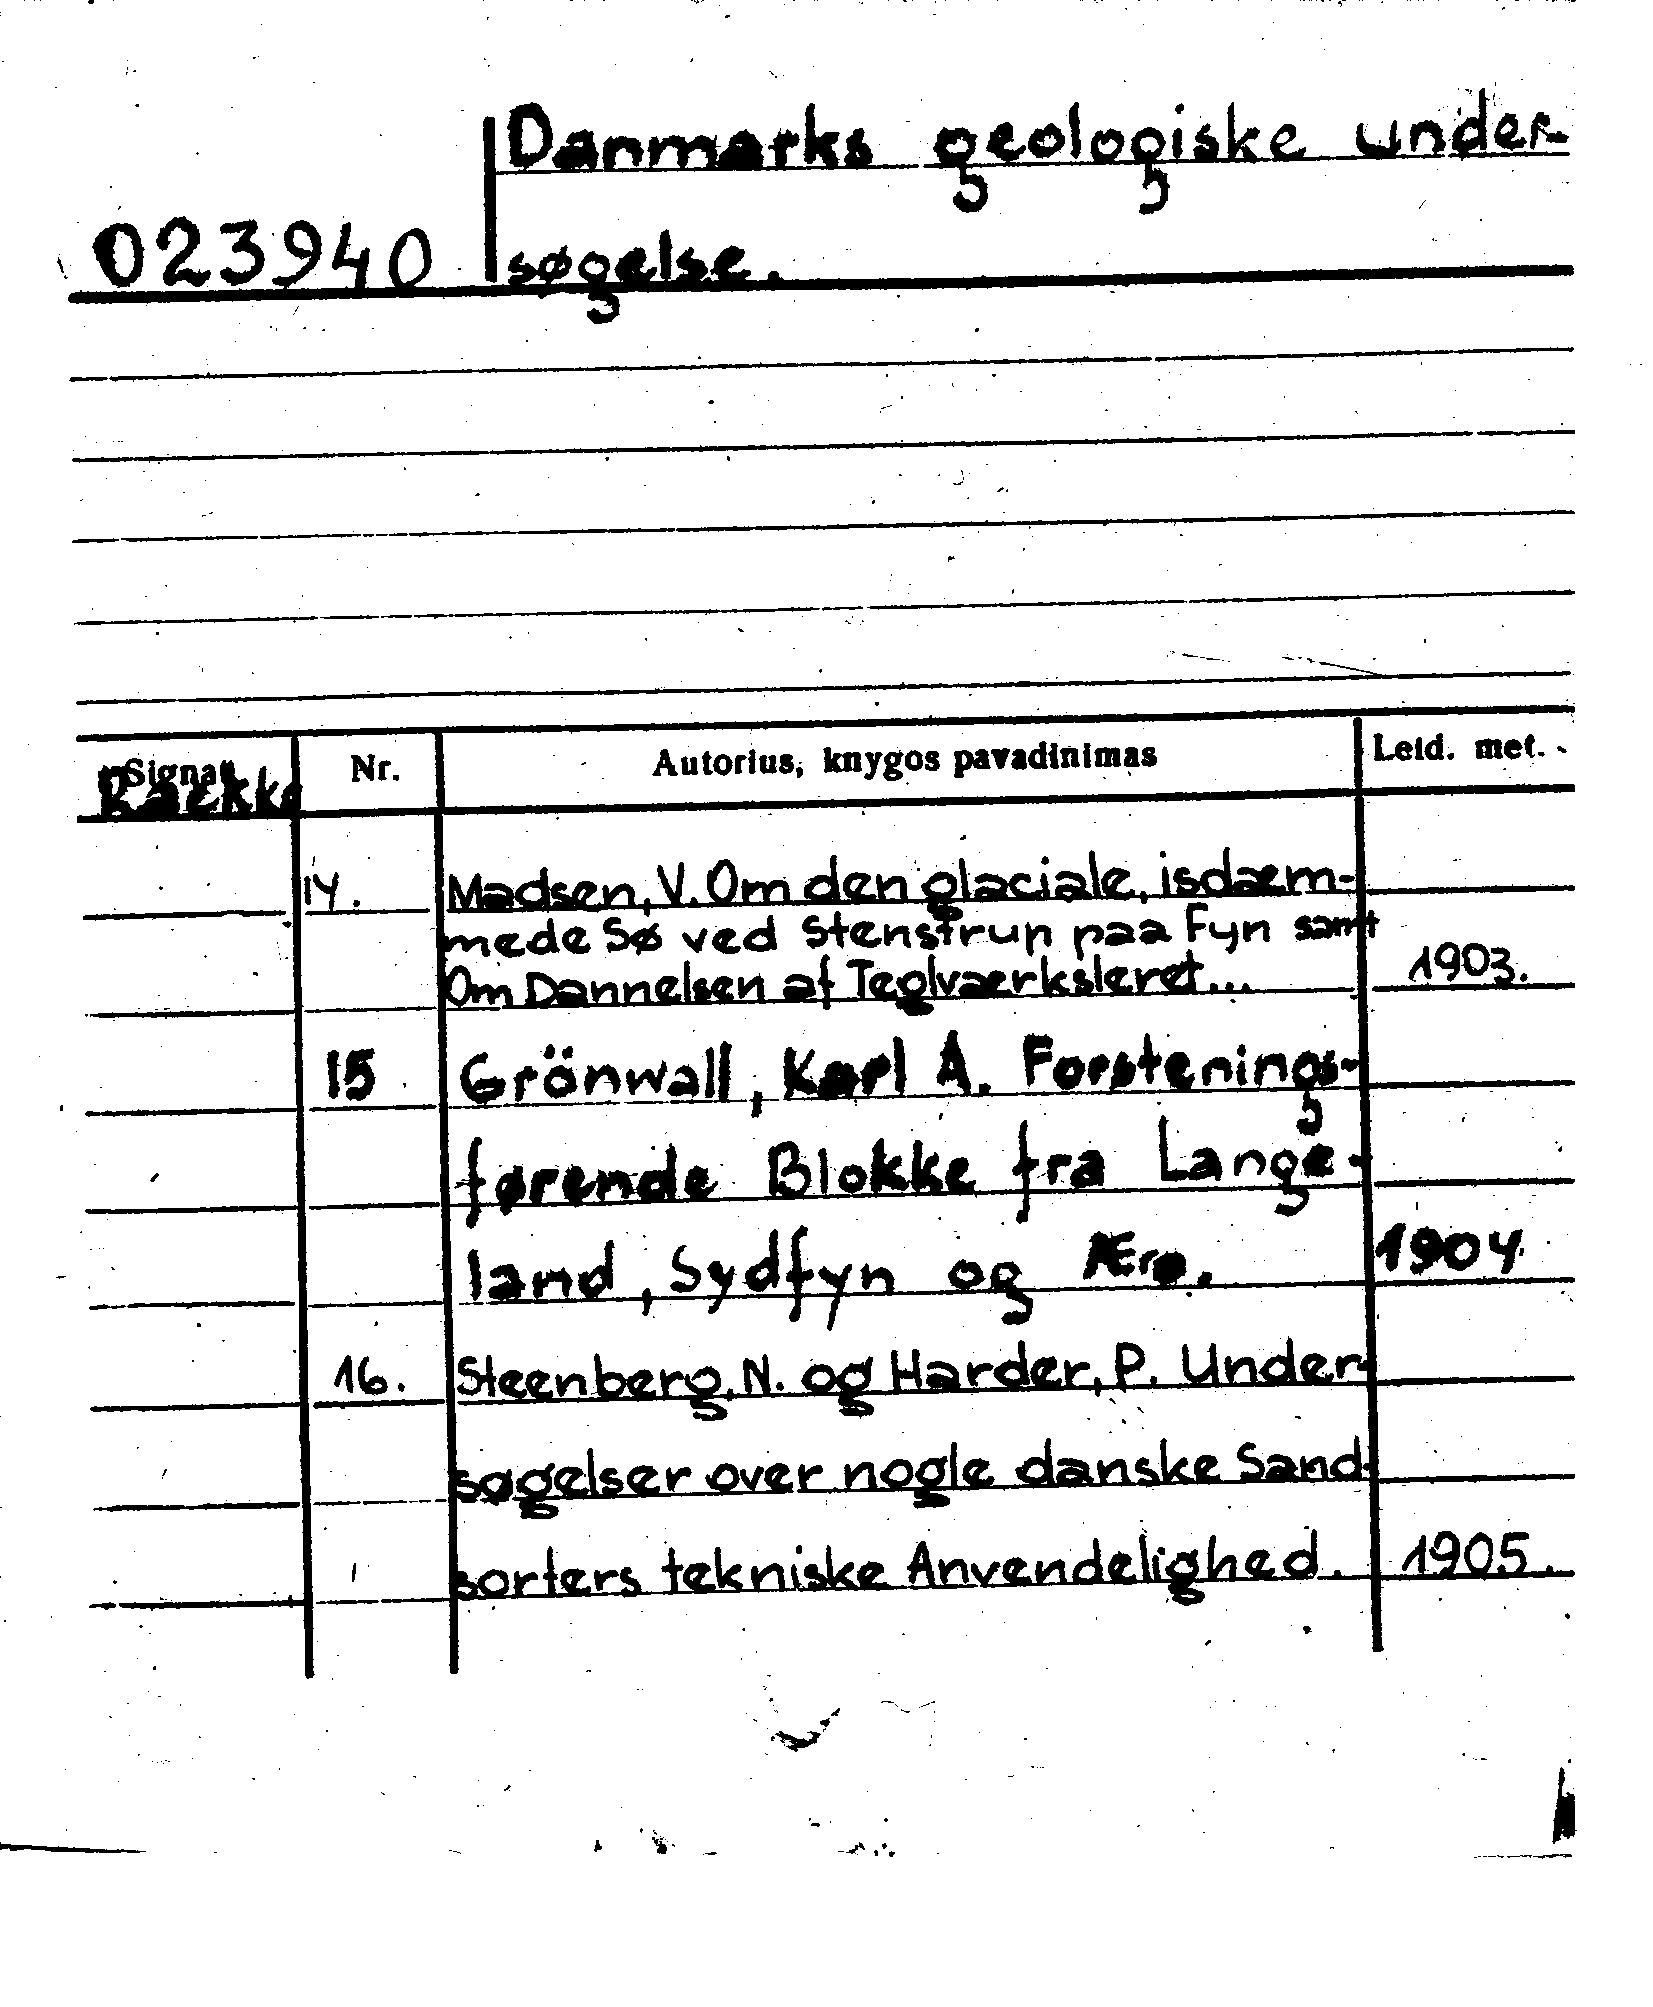 Danmarks geologiske under-
023940 søgelse.
Signat. Nr. Autorius, knygos pavadinimas Leid. met.
Raekke
14. Madsen, V. Om den glaciale, isdæm-
mede Sø ved Stenstrup paa Fyn samt
Om Dannelsen af Teglværksleret... 1903.
15 Grönwall, Karl A. Forstenings-
førende Blokke fra Lange-
land, Sydfyn og Ærø. 1904
16. Steenberg, N. og Harder, P. Under-
søgelser over nogle danske Sand-
sorters tekniske Anvendelighed. 1905.